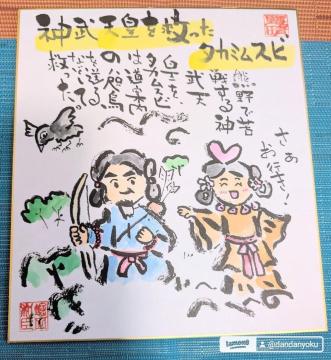 神武天皇を救った
タカミムスビ
熊野で苦
戦する神
武天
皇を、
タカミムスビ
は道案内
の八咫烏
を送る
などして
救った。
さあ
お行き!
lemon8 @dandanyoku